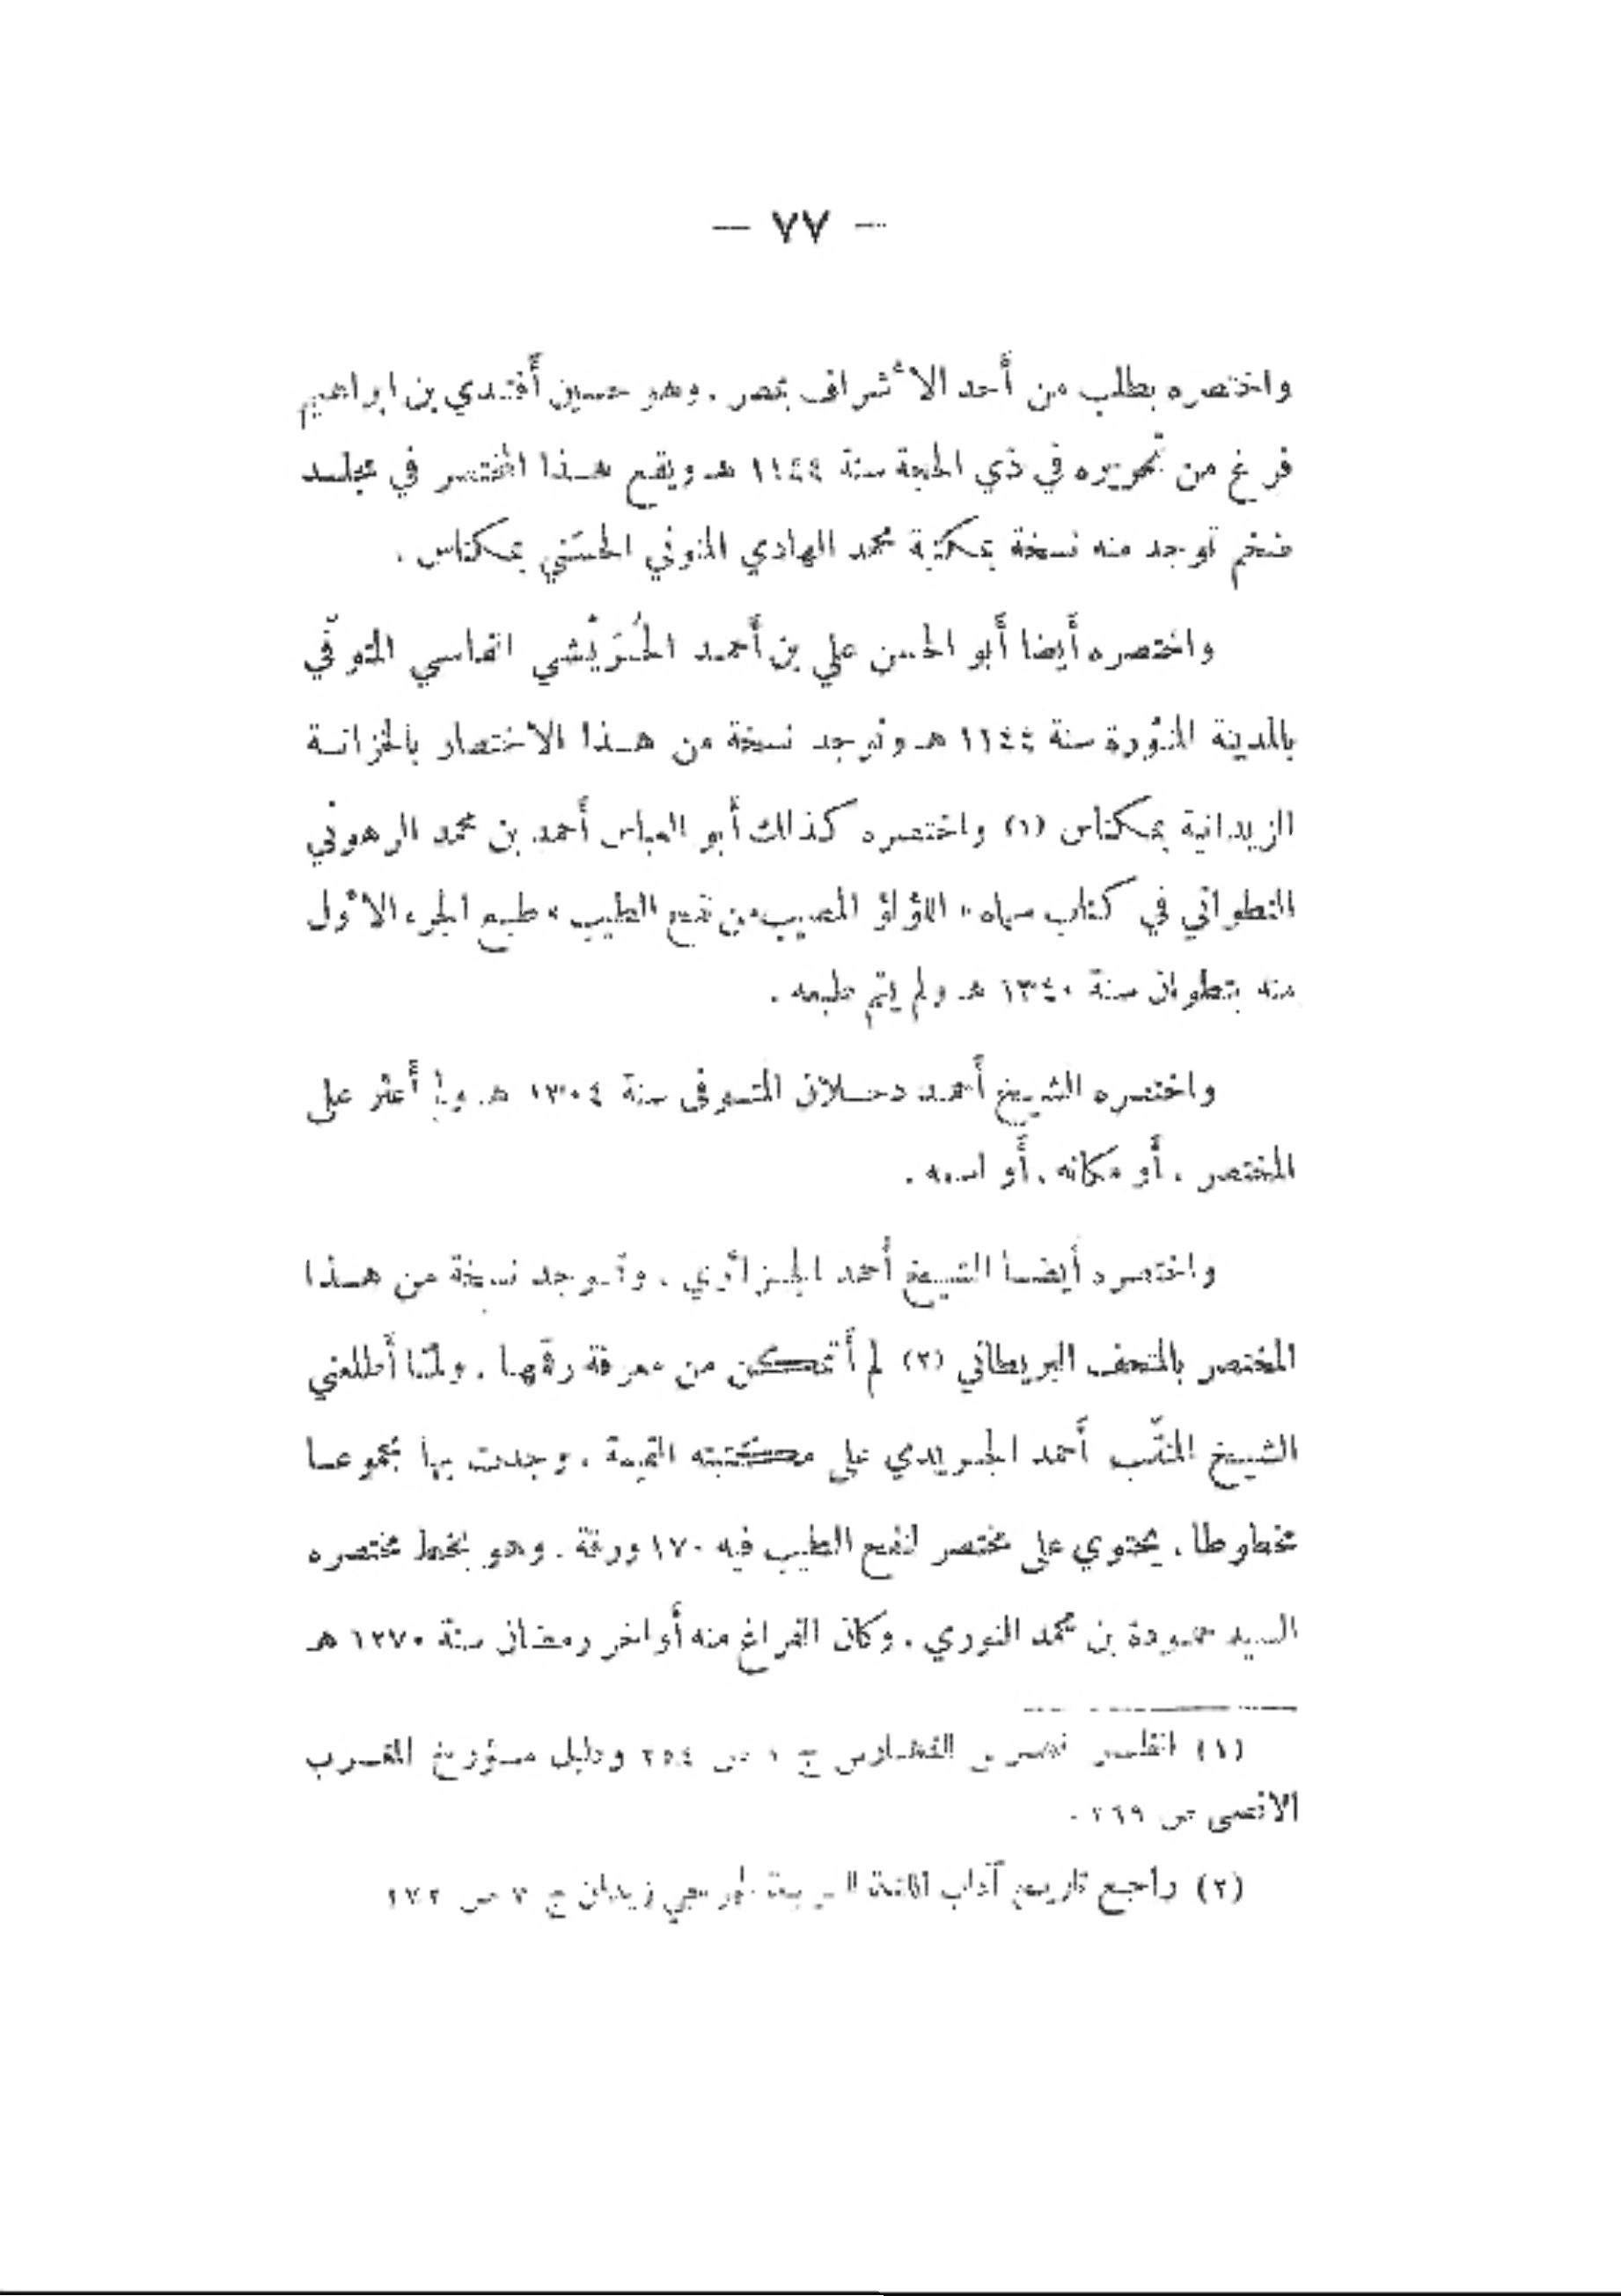 — ٧٧ —
واختصره بطلب من أحد الأشراف بمصر ، وهو حسين أفندي بن ابراهيم
فرغ من تحريره في ذي الحجة سنة ١١٤٤ هـ ويقع هذا المختصر في مجلد
ضخم توجد منه نسخة بمكتبة محمد الهادي المنوني الحسَني بمكناس .
واختصره أيضا أبو الحسن علي بن أحمد الحُرَيْشي الفاسي المتوفّي
بالمدينة المنوّرة سنة ١١٤٤ هـ وتوجد نسخة من هذا الاختصار بالخزانة
الزيدانية بمكناس (١) واختصره كذلك أبو العباس أحمد بن محمد الرهوني
التطواني في كتاب سماه « اللؤلؤ المصيب من نفح الطيب » طبع الجزء الأول
منه بتطوان سنة ١٣٤٠ هـ ولم يتم طبعه .
واختصره الشيخ أحمد دحلان المتوفى سنة ١٣٠٤ هـ ولم أعثر على
المختصر ، أو مكانه ، أو اسمه .
واختصره أيضا الشيخ أحمد الجزائري ، وتوجد نسخة من هذا
المختصر بالمتحف البريطاني (٢) لم أتمكن من معرفة رقمها . ولمّا أطلعني
الشيخ المنقّب أحمد الجريدي على مكتبته القيمة ، وجدت بها مجموعا
مخطوطا ، يحتوي على مختصر لنفح الطيب فيه ١٧٠ ورقة . وهو بخط مختصره
السيد حمودة بن محمد النوري ، وكان الفراغ منه أواخر رمضان سنة ١٢٧٠ هـ
(١) انظر فهرس الفهارس ج ١ ص ٢٥٤ ودليل مؤرخ المغرب
الاقصى ص ٢٦٩ .
(٢) راجع تاريخ آداب اللغة العربية لجورجي زيدان ج ٣ ص ٢٧٢